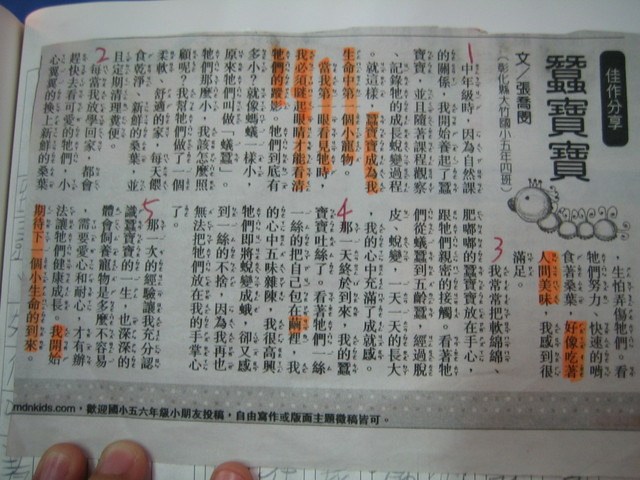 佳作分享
蠶寶寶
文/張喬閔
(彰化縣大竹國小五年四班)
1
中年級時,因為自然課
的關係,我開始養起了蠶
寶寶,並且隨著課程觀察
、記錄牠的成長蛻變過程
。就這樣,蠶寶寶成為我
生命中第一個小寵物。
當我第一眼看見牠時,
我必須瞇起眼睛才能看清
牠們的蹤影。牠們到底有
多小?就像螞蟻一樣小,
原來牠們叫做「蟻蠶」。
牠們那麼小,我該怎麼照
顧呢?我幫牠們做了一個
柔軟、舒適的家,每天餵
食乾淨、新鮮的桑葉,並
且定期清理糞便。
2
每當我放學回家,都會
趕快去看可愛的牠們,小
心翼翼的換上新鮮的桑葉
,生怕弄傷牠們。看
牠們努力、快速的啃
食著桑葉,好像吃著
人間美味,我感到很
滿足。
3
我常常把軟綿綿、
肥嘟嘟的蠶寶寶放在手心,
跟牠們親密的接觸。看著牠
們從蟻蠶到五齡蠶,經過脫
皮、蛻變,一天一天的長大
,我的心中充滿了成就感。
4
那一天終於到來,我的蠶
寶寶吐絲了。看著牠們一絲
一絲的把自己包在繭裡,我
的心中五味雜陳,我很高興
牠們即將蛻變成蛾,卻又感
到一絲的不捨,因為我再也
無法把牠們放在我的手掌心
了。
5
那一次的經驗讓我充分認
識蠶寶寶的一生,也深深的
體會飼養寵物是多麼不容易
,需要愛心和耐心,才有辦
法讓牠們健康成長。我開始
期待下一個小生命的到來。
mdnkids.com,歡迎國小五六年級小朋友投稿,自由寫作或版面主題徵稿皆可。